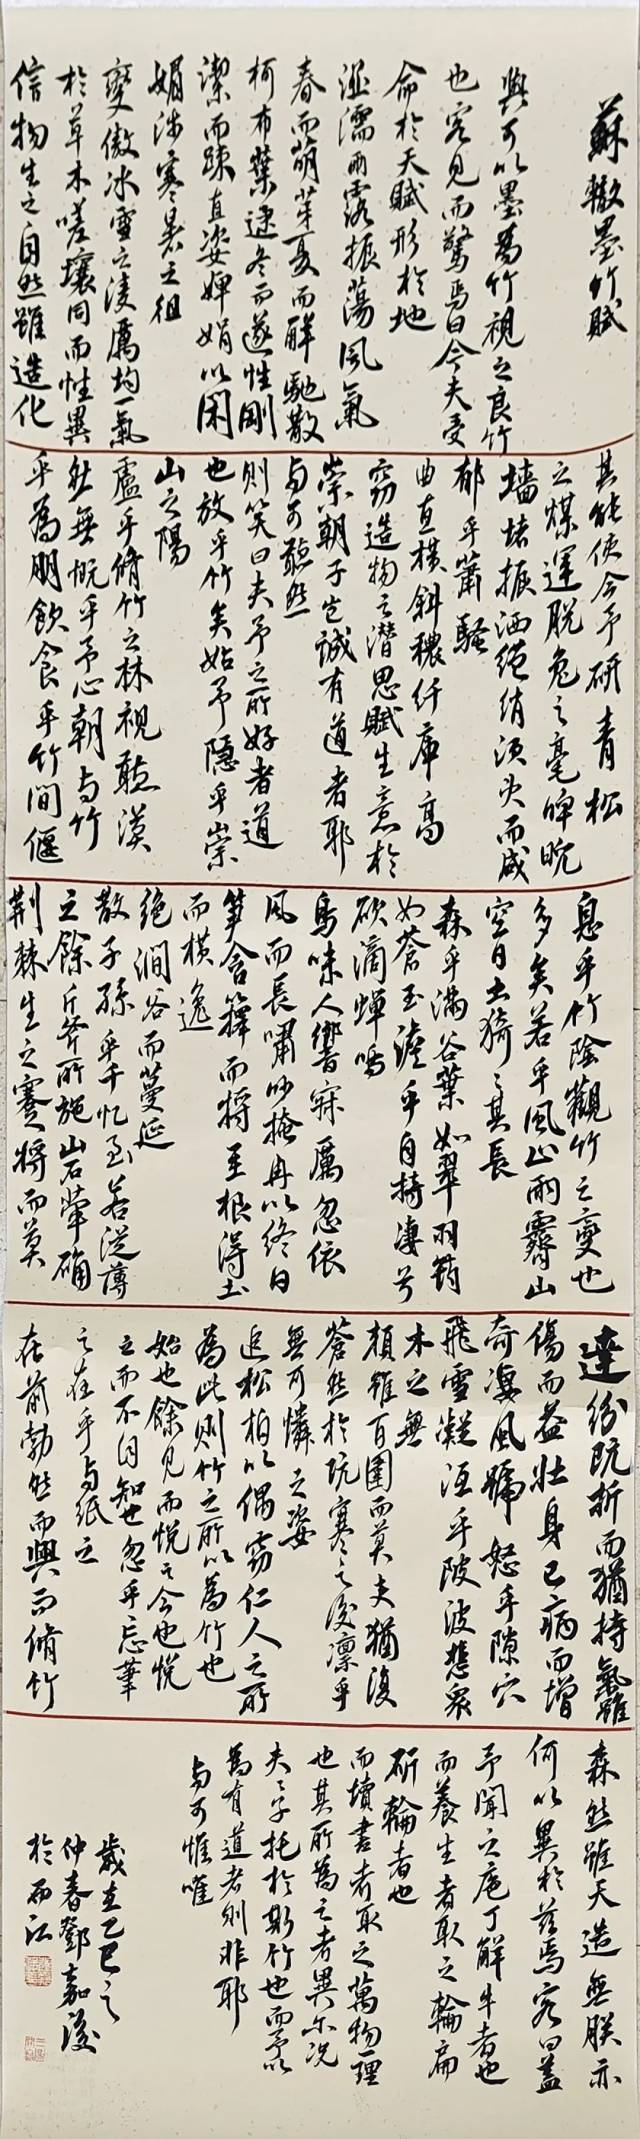 蘇轍墨竹賦
與可以墨為竹視之良竹
也客見而驚焉曰今夫受
命於天賦形於地
涵濡雨露振蕩風氣
春而萌芽夏而解馳散
柯布葉逮冬而遂性剛
潔而疎直姿嬋娟以閑
媚涉寒暑之徂
變傲冰雪之凌厲均一氣
於草木嗟壤同而性異
信物生之自然雖造化
其能使今予研青松
之煤運脫兔之毫睥睨
墻堵振洒繒綃須臾而成
郁乎蕭騷
曲直橫斜穠纤庳高
竊造物之潛思賦生意於
崇朝子豈誠有道者耶
与可聽然
則笑曰夫予之所好者道
也放乎竹矣始予隱乎崇
山之陽
廬乎脩竹之林視聽漠
然無概乎予心朝与竹
乎為朋飲食乎竹間偃
息乎竹陰觀竹之變也
多矣若乎風止雨霽山
空日出猗々其長
森乎滿谷葉如翠羽筠
如蒼玉澹乎自持凄兮
欲滴蟬鳴
鳥噪人響寂厲忽依
風而長嘯眇掩冉以終日
笋含籜而將墜根得土
而橫逸
絕澗谷而蔓延
散子孫乎千忆至若叢薄
之餘斤斧所施山石犖确
荆棘生之蹇將而莫
達紛既折而猶持氣雖
傷而益壯身已病而增
奇凄風號怒乎隙穴
飛雪凝冱乎陂池悲衆
木之無
賴雖百圍而莫支猶復
蒼然於既寒之後凛乎
無可憐之姿
追松柏以偶竊仁人之所
為此則竹之所以為竹也
始也餘見而悦之今也悦
之而不自知也忽乎忘筆
之在手与纸之
在前勃然而興而脩竹
森然雖天造無朕亦
何以異於兹焉客曰蓋
予聞之庖丁解牛者也
而養生者取之輪扁
斫輪者也
而讀書者取之萬物一理
也其所為之者異尔况
夫夫子托於斯竹也而予以
為有道者則非耶
与可惟唯
歲在乙巳之
仲春鄧嘉浚
於西江